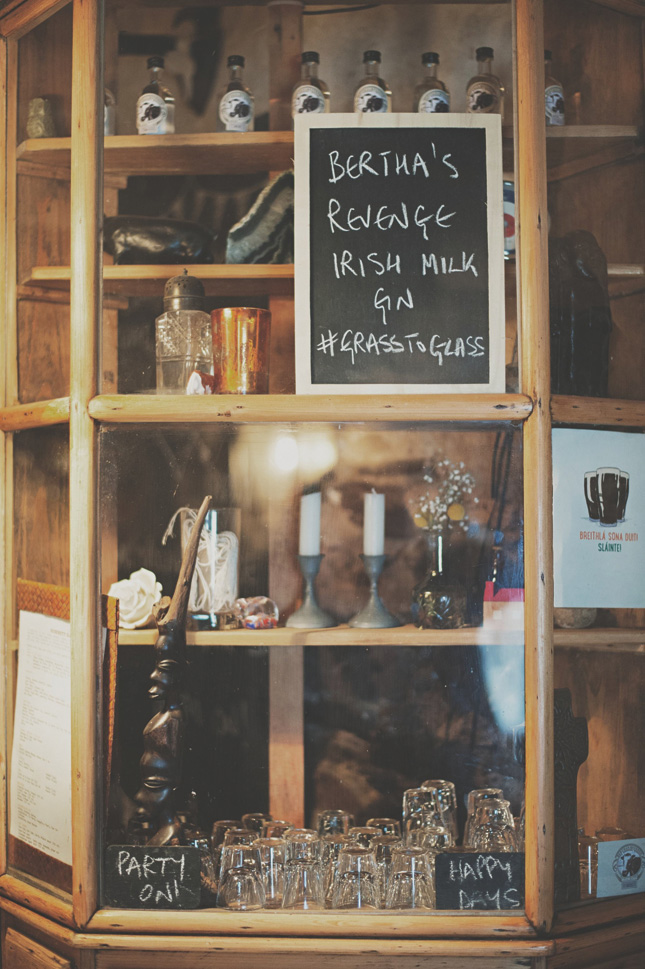 BERTHA'S
REVENGE
IRISH MILK
GIN
#GRASSTOGLASS
BREITHLÁ SONA DUIT!
SLÁINTE!
PARTY
ON!
HAPPY
DAYS